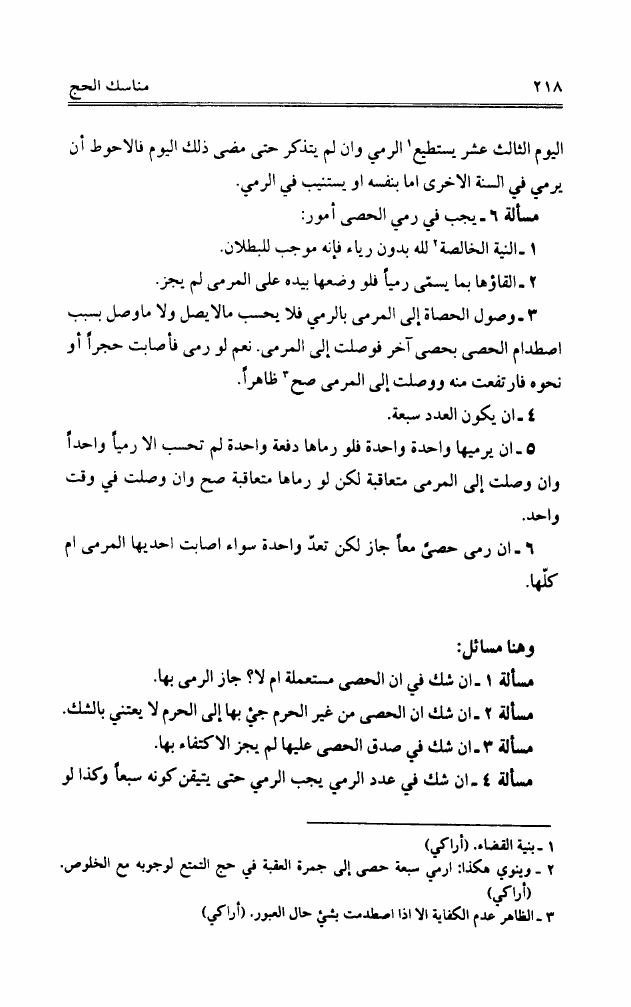 ٢١٨
مناسك الحج
اليوم الثالث عشر يستطيع١ الرمي وان لم يتذكر حتى مضى ذلك اليوم فالاحوط أن
يرمي في السنة الاخرى اما بنفسه او يستنيب في الرمي.
مسألة ٦ ـ يجب في رمي الحصى أمور:
١ ـ النية الخالصة٢ لله بدون رياء فإنه موجب للبطلان.
٢ ـ القاؤها بما يسمّى رمياً فلو وضعها بيده على المرمى لم يجز.
٣ ـ وصول الحصاة إلى المرمى بالرمي فلا يحسب مالايصل ولا ماوصل بسبب
اصطدام الحصى بحصى آخر فوصلت إلى المرمى. نعم لو رمى فأصابت حجراً أو
نحوه فارتفعت منه ووصلت إلى المرمى صح٣ ظاهراً.
٤ ـ ان يكون العدد سبعة.
٥ ـ ان يرميها واحدة واحدة فلو رماها دفعة واحدة لم تحسب الا رمياً واحداً
وان وصلت إلى المرمى متعاقبة لكن لو رماها متعاقبة صح وان وصلت في وقت
واحد.
٦ ـ ان رمى حصىً معاً جاز لكن تعدّ واحدة سواء اصابت احديها المرمى ام
كلّها.
وهنا مسائل:
مسألة ١ ـ ان شك في ان الحصى مستعملة ام لا؟ جاز الرمى بها.
مسألة ٢ ـ ان شك ان الحصى من غير الحرم جئ بها إلى الحرم لا يعتني بالشك.
مسألة ٣ ـ ان شك في صدق الحصى عليها لم يجز الاكتفاء بها.
مسألة ٤ ـ ان شك في عدد الرمي يجب الرمي حتى يتيقن كونه سبعاً وكذا لو
١ ـ بنية القضاء. (أراكي)
٢ ـ وينوي هكذا: ارمي سبعة حصى إلى جمرة العقبة في حج التمتع لوجوبه مع الخلوص.
(أراكي)
٣ ـ الظاهر عدم الكفاية الا اذا اصطدمت بشئ حال العبور. (أراكي)